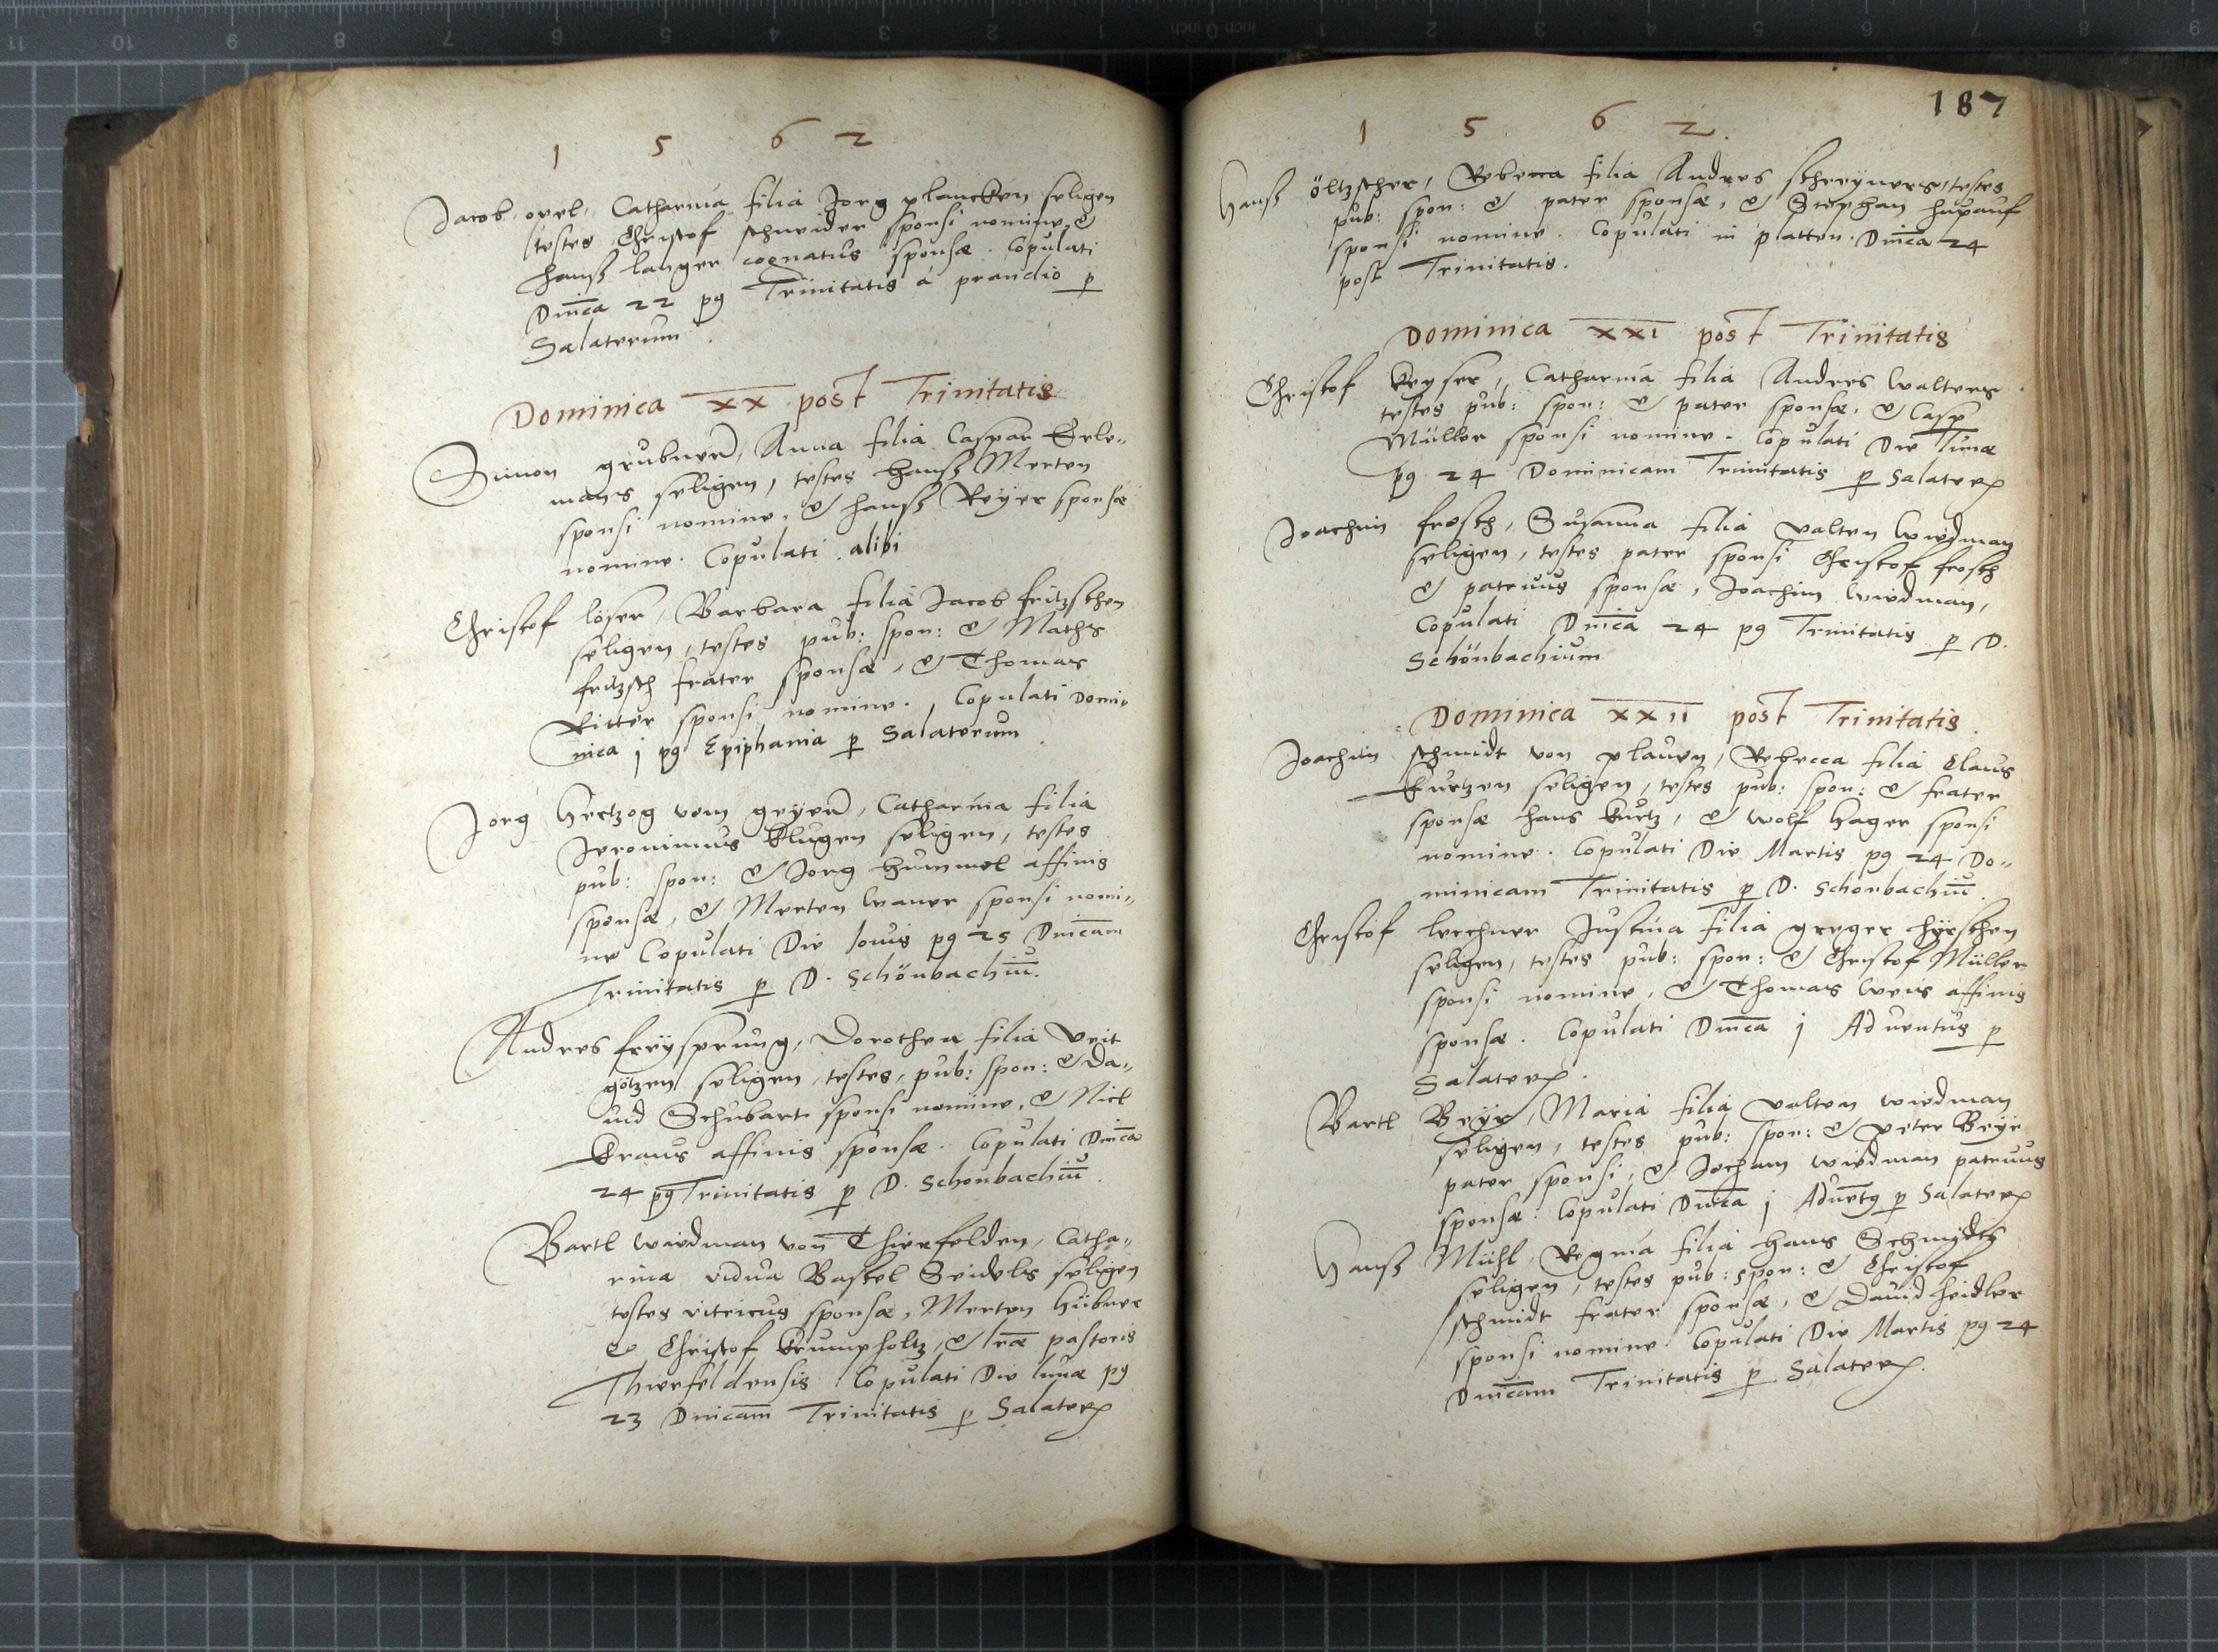 1 5 6 2
Jacob opel, Catharina filia Jorg plancken seligen
testes Christof schneider sponsi nomine, &
Hanß langer cognatus sponsæ. Copulati
Dnica 22 pg Trinitatis à prandio p
Salaterum.
Dominica XX post Trinitatis
Simon grubner, Anna filia Caspar Erle-
mans seligen, testes Hanß Merten
sponsi nomine, & Hanß Reyer sponsæ
nomine. Copulati alibi
Christof löser, Barbara filia Jacob fritzschen
seligen, testes pub: spon: & Mathes
fritzsch frater sponsæ, & Thomas
Ritter sponsi nomine. Copulati Domi-
nica j pg Epiphania p Salaterum
Jorg Hertzog vom geyer, Catharina filia
Jeronimus klugen seligen, testes
pub: spon: & Jorg hummel affinis
sponsæ, & Merten waner sponsi nomi-
ne Copulati Die Jouis pg 25 Dnicam
Trinitatis p D. Schönbachiu.
Andres freysprung, Dorothea filia Veit
götzen seligen, testes, pub: spon: & Da-
uid Schubart sponsi nomine, & Nicl
Kraus affinis sponsæ. Copulati Dnica
24 pg Trinitatis p D. Schonbachiu.
Bartl wiedman von Thierfelden, Catha-
rina vidua Bastel Seidels seligen
testes vitricus sponsæ, Merten Hübner
& Christof Krumpholtz, & lræ pastoris
Thierfeldensis. Copulati Die lunæ pg
23 Dnicam Trinitatis p Salater
187
1 5 6 2.
Hanß öltzscher, Rebecca filia Andres schreyners, testes
pub: spon: & pater sponsæ, & Stephan hupauf
sponsi nomine. Copulati in platten. Dnica 24
post Trinitatis.
Dominica XXI post Trinitatis
Christof keyser, Catharina filia Andres walters.
testes pub: spon: & pater sponsæ, & Casp
Müller sponsi nomine. Copulati Die lunæ
pg 24 Dominicam Trinitatis p Salater
Joachim frosch, Susanna filia valten wiedman
seligen, testes pater sponsi Christof frosch
& patruus sponsæ, Joachim wiedman,
Copulati Dnica 24 pg Trinitatis p D.
Schönbachium
Dominica XXII post Trinitatis.
Joachim schmidt von plauen, Rebecca filia Claus
Kurtzen seligen, testes pub: spon: & frater
sponsæ hans kurtz, & wolf hager sponsi
nomine. Copulati Die Martis pg 24 Do-
minicam Trinitatis p D. Schonbachiu.
Christof lerchner Justina filia greger hyrschen
seligen, testes pub: spon: & Christof Müller
sponsi nomine, & Thomas weis affinis
sponsæ. Copulati Dnica j Aduentus p
Salater.
Bartl Beyr, Maria filia valten wiedman
seligen, testes pub: spon: & peter Beyr
pater sponsi, & Jocham wiedman patruus
sponsæ. Copulati Dnica j Aduetg p Salater
Hanß Mühl, Regina filia hans Schmydes
seligen, testes pub: spon: & Christof
schmidt frater sponsæ, & Dauid heidler
sponsi nomine. Copulati Die Martis pg 24
Dnicam Trinitatis p Salater.